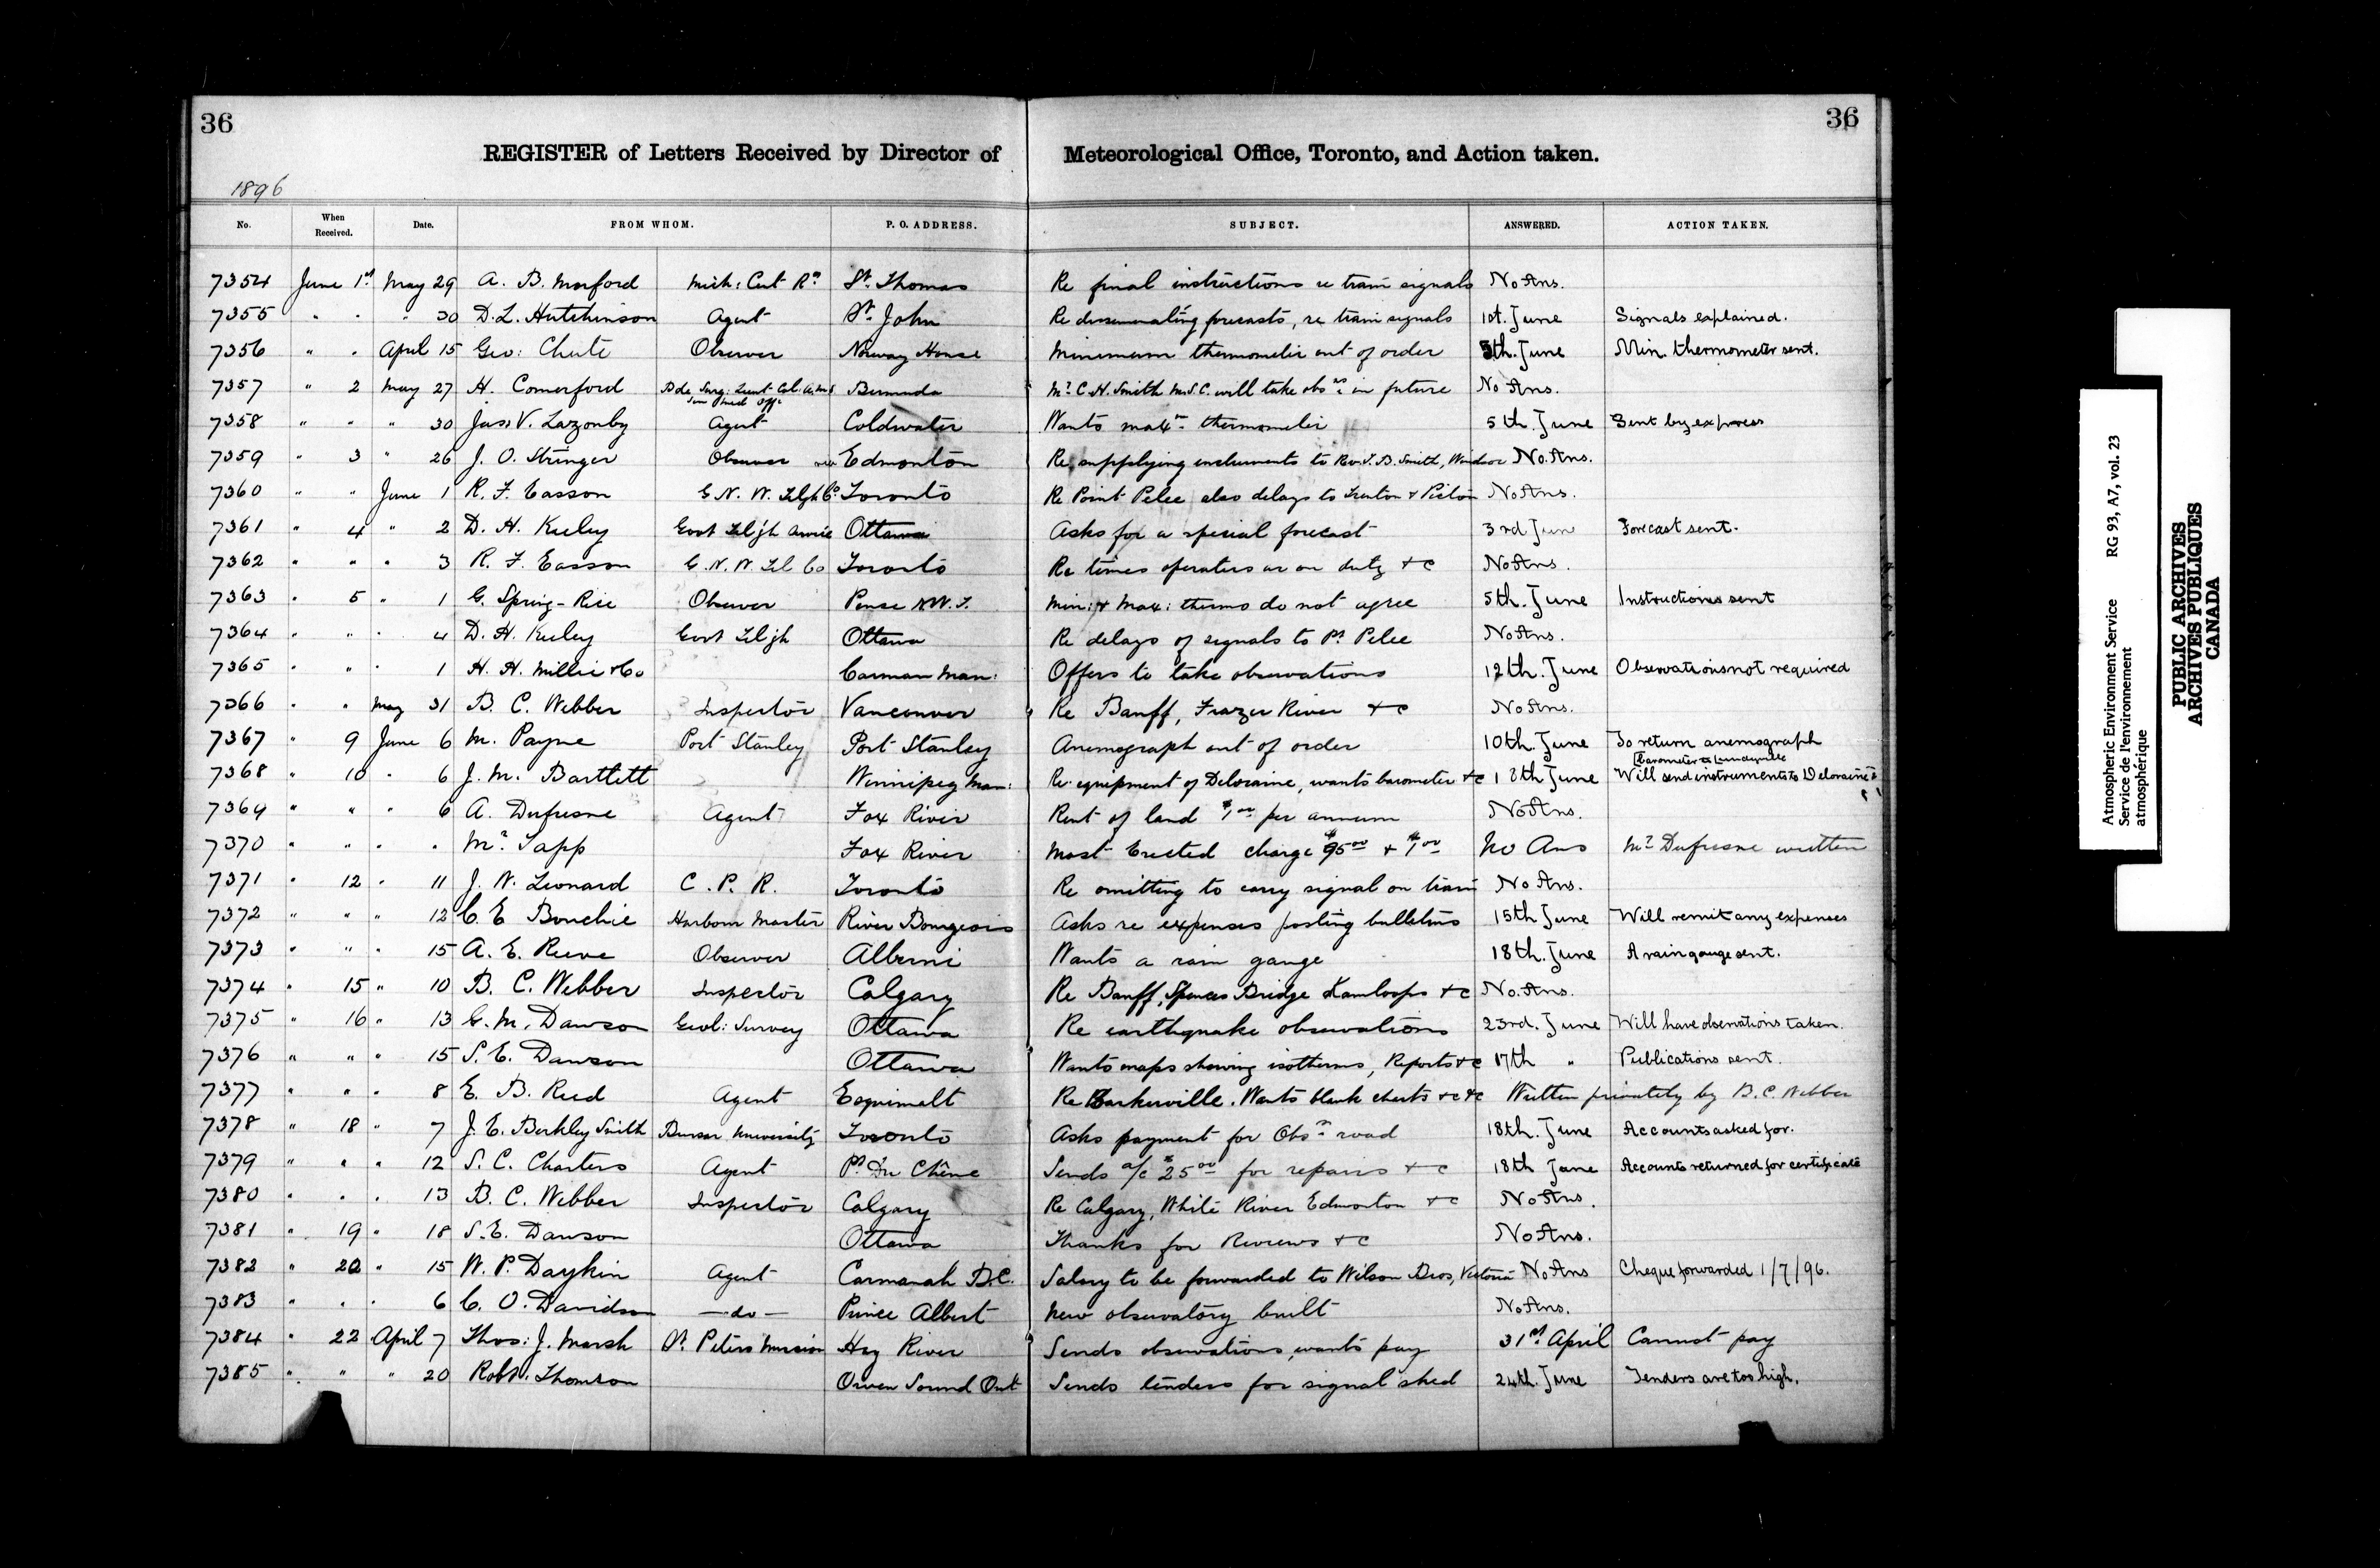 36
36
REGISTER of Letters Received by Director of Meteorological Office, Toronto, and Action taken.
1896
No. When Received. Date. FROM WHOM. P. O. ADDRESS. SUBJECT. ANSWERED. ACTION TAKEN.
7354 June 1st May 29 A. B. Morford Mich: Cent Rd St. Thomas Re final instructions re train signals No Ans.
7355 " " " 30 D. L. Hutchinson Agent St. John Re disseminating forecasts, re train signals 1st. June Signals explained.
7356 " " April 15 Geo: Chute Observer Norway House Minimum thermometer out of order 5th. June Min. thermometer sent.
7357 " 2 May 27 H. Comerford Bde Surg: Lieut Col: A.M.S Bermuda Mr C. H. Smith M.S.C. will take obsns in future No Ans.
Sen Med Offr
7358 " " " 30 Jas. V. Lazonby Agent Coldwater Wants maxm thermometer 5th. June Sent by express
7359 " 3 " 26 J. O. Stringer Observer Edmonton Re supplying instruments to Rev. T. B. Smith, Windsor No. Ans.
7360 " " June 1 R. F. Easson G. N. W. Telgh Co. Toronto Re Point Pelee also delays to Trenton & Picton No Ans.
7361 " 4 " 2 D. H. Keeley Govt Telgh Service Ottawa Asks for a special forecast 3rd Jun Forecast sent.
7362 " " " 3 R. F. Easson G. N. W. Tel Co Toronto Re times operators are on duty &c No Ans.
7363 " 5 " 1 G. Spring-Rice Observer Pense N.W.T. Min: & Max: thermo do not agree 5th. June Instructions sent
7364 " " " 4 D. H. Keeley Govt Telgh Ottawa Re delays of signals to Pt Pelee No Ans.
7365 " " " 1 H. H. Millie & Co Carman Man: Offers to take observations 12th. June Observations not required
7366 " " May 31 B. C. Webber Inspector Vancouver Re Banff, Frazer River &c No Ans.
7367 " 9 June 6 M. Payne Port Stanley Port Stanley Anemograph out of order 10th. June To return anemograph
7368 " 10 " 6 J. M. Bartlett Winnipeg Man: Re equipment of Deloraine, wants barometer &c 18th June Will send instruments to Deloraine &
Barometer to
7369 " " " 6 A. Dufresne Agent Fox River Rent of land $1.00 per annum No Ans.
7370 " " " " Mr. Tapp Fox River Mast Erected charge $95.00 & $1.00 No Ans Mr. Dufresne written
7371 " 12 " 11 J. W. Leonard C. P. R. Toronto Re omitting to carry signal on train No Ans.
7372 " " " 12 C. E Bouchie Harbour Master River Bourgeois Asks re expenses posting bulletins 15th June Will remit any expenses
7373 " " " 15 A. E. Reeve Observer Alberni Wants a rain gauge 18th. June A rain gauge sent.
7374 " 15 " 10 B. C. Webber Inspector Calgary Re Banff, Spences Bridge Kamloops &c No. Ans.
7375 " 16 " 13 G. M. Dawson Geol: Survey Ottawa Re earthquake observations 23rd. June Will have observations taken.
7376 " " " 15 S. E. Dawson Ottawa Wants maps showing isotherms, Reports &c 17th " Publications sent.
7377 " " " 8 E. B. Reed Agent Esquimalt Re Barkerville. Wants blank charts &c &c Written privately by B. C. Webber
7378 " 18 " 7 J. E. Berkley Smith Bursar University Toronto Asks payment for Obsy road 18th. June Accounts asked for.
7379 " " " 12 S. C. Charters Agent Pt Du Chêne Sends a/c $25.00 for repairs &c 18th June Accounts returned for certificate
7380 " " " 13 B. C. Webber Inspector Calgary Re Calgary, White River Edmonton &c No Ans.
7381 " 19 " 18 S. E. Dawson Ottawa Thanks for Reviews &c No Ans.
7382 " 20 " 15 W. P. Daykin Agent Carmanah B.C. Salary to be forwarded to Wilson Bros, Victoria No Ans Cheque forwarded 1/7/96.
7383 " " " 6 C. O. Davidson —do— Prince Albert New observatory built No Ans.
7384 " 22 April 7 Thos: J. Marsh St. Peters Mission Hay River Sends observations, wants pay 31st April Cannot pay
7385 " " " 20 Robt. Thomson Owen Sound Ont Sends tenders for signal shed 24th. June Tenders are too high.
Atmospheric Environment Service RG 93, A7, vol. 23
Service de l'environnement
atmosphérique
PUBLIC ARCHIVES
ARCHIVES PUBLIQUES
CANADA